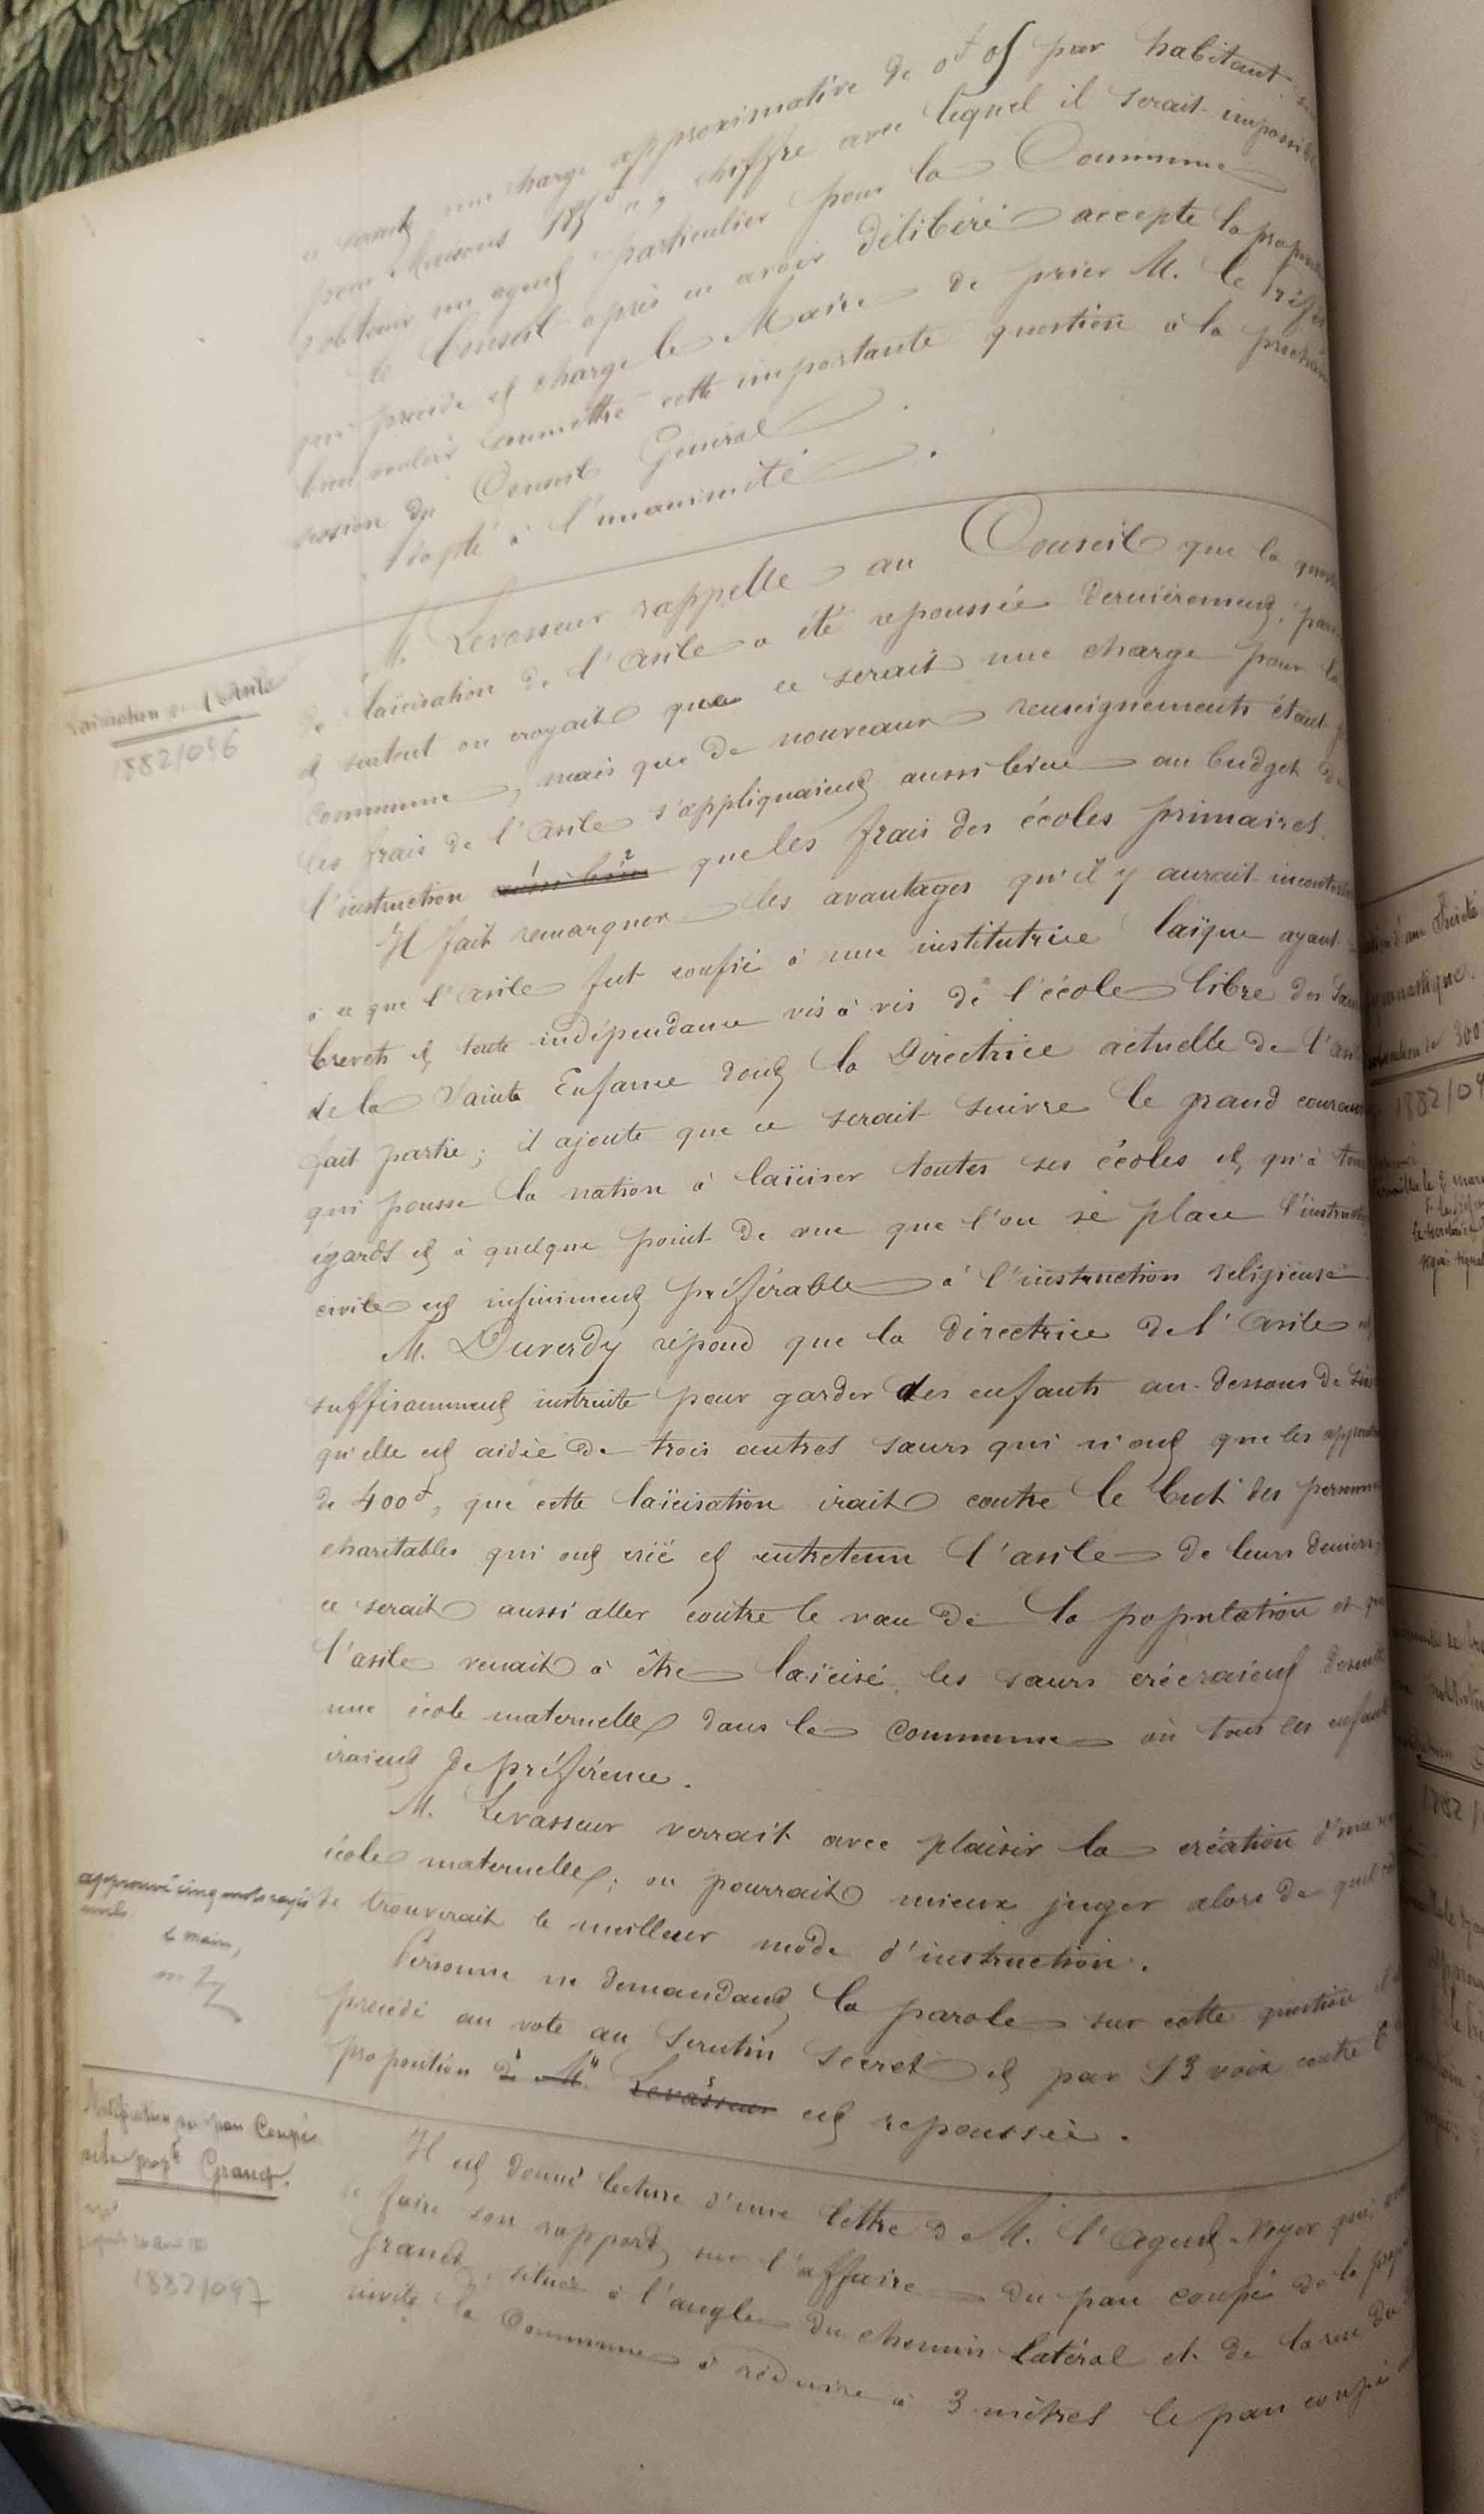 ce serait une charge approximative de 0f 05 par habitant
pour 185f chiffre avec lequel il serait impossible
d'obtenir un agent particulier pour la Commune
le Conseil après en avoir délibéré accepte la
qui précède et charge le Maire de prier M. le Préfet
bien vouloir soumettre cette importante question à la prochaine
session du Conseil Général
à l'unanimité.
Laïcisation de l'Asile
1882/096
M. Levasseur rappelle au Conseil que la
de laïcisation de l'asile a été repoussée dernièrement,
et surtout on croyait que ce serait une charge pour la
commune, mais que de nouveaux renseignements étant
les frais de l'asile s'appliquaient aussi bien au budget de
l'instruction aussi bien que les frais des écoles primaires.
Il fait remarquer les avantages qu'il y aurait
à ce que l'asile fut confié à une institutrice laïque ayant
brevets et toute indépendance vis à vis de l'école libre des
de la Sainte Enfance dont la Directrice actuelle de l'asile
fait partie; il ajoute que ce serait suivre le grand courant
qui pousse la nation à laïciser toutes ses écoles et qu'à tous
égards et à quelque point de vue que l'on se place l'instruction
civile est infiniment préférable à l'instruction religieuse.
M. Duverdy répond que la directrice de l'asile
suffisamment instruite pour garder des enfants au-dessous de
qu'elle est aidée de trois autres sœurs qui n'ont que les
de 400f, que cette laïcisation irait contre le but des personnes
charitables qui ont créé et entretenu l'asile de leurs deniers,
ce serait aussi aller contre le vœu de la population et
l'asile venait à être laïcisé, les sœurs créeraient
une école maternelle dans la commune où tous les enfants
iraient de préférence.
M. Levasseur verrait avec plaisir la création d'une
école maternelle; on pourrait mieux juger alors de quel
se trouverait le meilleur mode d'instruction.
approuvé cinq mots rayés
nuls.
le maire,
Personne ne demandant la parole sur cette question
procédé au vote au scrutin secret et par 13 voix contre
proposition de M. Levasseur est repoussée.
pan Coupé
Grand.
1882/097
Il est donné lecture d'une lettre de M. l'Agent-Voyer qui
faire son rapport sur l'affaire du pan coupé de la
Grand, située à l'angle du chemin latéral et de la rue
invite la Commune à réduire à 3 mètres le pan coupé
d'une Société
gymnastique.
300
1882/09
1882/